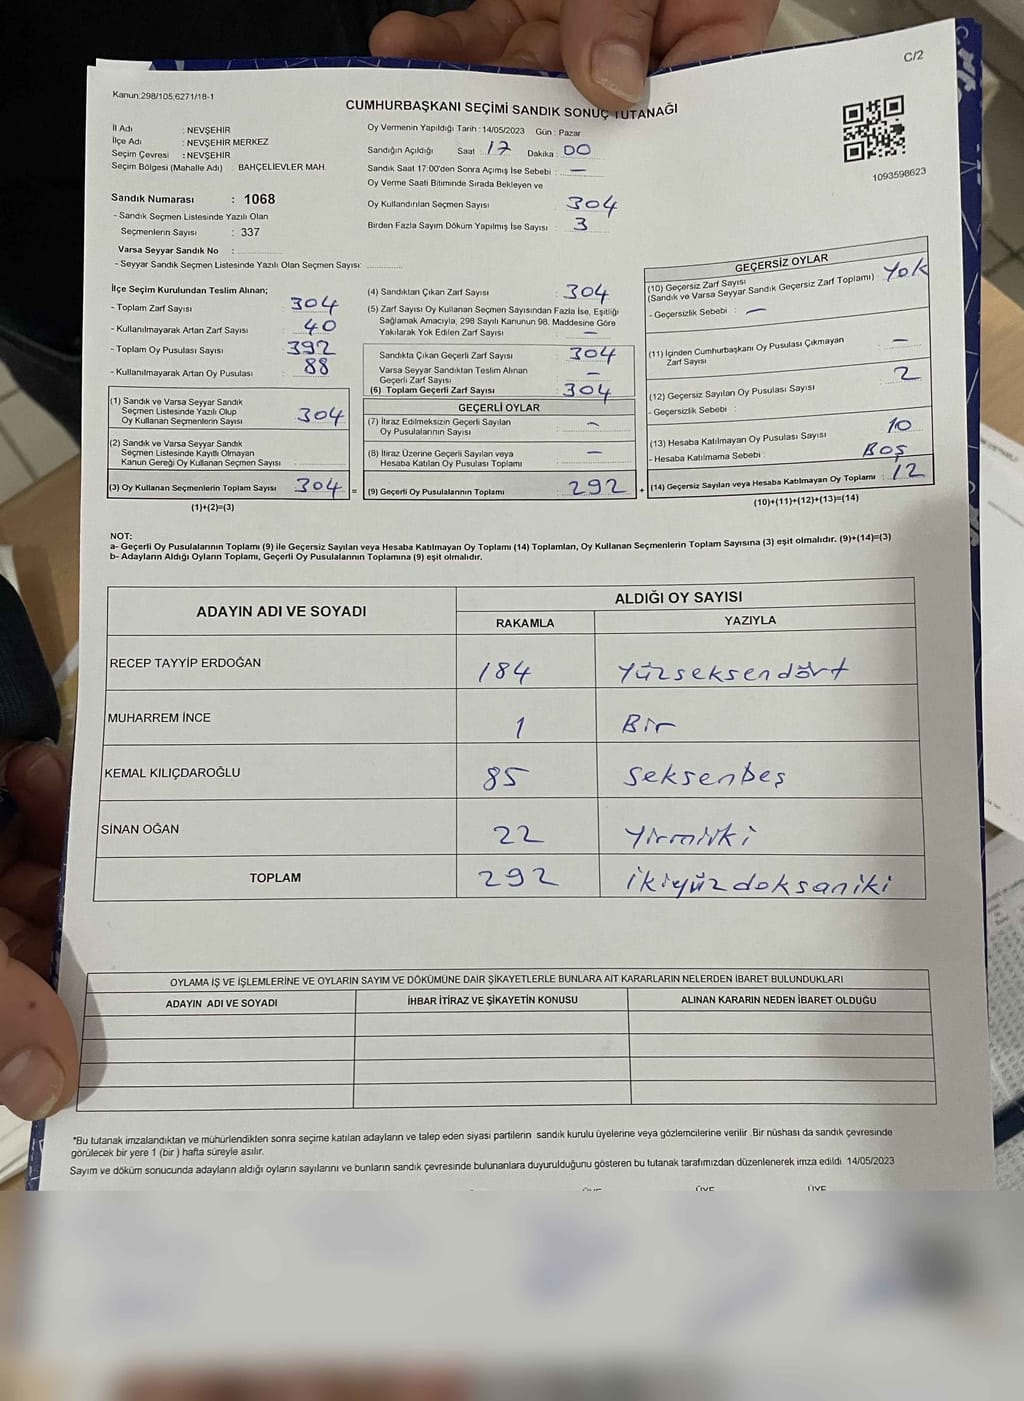 C/2
Kanun:298/105,6271/18-1
CUMHURBAŞKANI SEÇİMİ SANDIK SONUÇ TUTANAĞI
İl Adı : NEVŞEHİR
İlçe Adı : NEVŞEHİR MERKEZ
Seçim Çevresi : NEVŞEHİR
Seçim Bölgesi (Mahalle Adı) : BAHÇELİEVLER MAH.
Sandık Numarası : 1068
- Sandık Seçmen Listesinde Yazılı Olan
Seçmenlerin Sayısı : 337
Varsa Seyyar Sandık No :
- Seyyar Sandık Seçmen Listesinde Yazılı Olan Seçmen Sayısı:
Oy Vermenin Yapıldığı Tarih : 14/05/2023 Gün : Pazar
Sandığın Açıldığı Saat : 17 Dakika : 00
Sandık Saat 17:00'den Sonra Açımış İse Sebebi : —
Oy Verme Saati Bitiminde Sırada Bekleyen ve
Oy Kullandırılan Seçmen Sayısı : 304
Birden Fazla Sayım Döküm Yapılmış İse Sayısı : 3
1093598623
İlçe Seçim Kurulundan Teslim Alınan;
- Toplam Zarf Sayısı : 304
- Kullanılmayarak Artan Zarf Sayısı : 40
- Toplam Oy Pusulası Sayısı : 392
- Kullanılmayarak Artan Oy Pusulası : 88
(1) Sandık ve Varsa Seyyar Sandık
Seçmen Listesinde Yazılı Olup
Oy Kullanan Seçmenlerin Sayısı : 304
(2) Sandık ve Varsa Seyyar Sandık
Seçmen Listesinde Kayıtlı Olmayan
Kanun Gereği Oy Kullanan Seçmen Sayısı :
(3) Oy Kullanan Seçmenlerin Toplam Sayısı : 304 =
(1)+(2)=(3)
(4) Sandıktan Çıkan Zarf Sayısı : 304
(5) Zarf Sayısı Oy Kullanan Seçmen Sayısından Fazla İse, Eşitliği
Sağlamak Amacıyla, 298 Sayılı Kanunun 98. Maddesine Göre
Yakılarak Yok Edilen Zarf Sayısı : —
Sandıkta Çıkan Geçerli Zarf Sayısı : 304
Varsa Seyyar Sandıktan Teslim Alınan
Geçerli Zarf Sayısı : —
(6) Toplam Geçerli Zarf Sayısı : 304
GEÇERLİ OYLAR
(7) İtiraz Edilmeksizin Geçerli Sayılan
Oy Pusulalarının Sayısı : —
(8) İtiraz Üzerine Geçerli Sayılan veya
Hesaba Katılan Oy Pusulası Toplamı : —
(9) Geçerli Oy Pusulalarının Toplamı : 292 +
GEÇERSİZ OYLAR
(10) Geçersiz Zarf Sayısı
(Sandık ve Varsa Seyyar Sandık Geçersiz Zarf Toplamı) : Yok
- Geçersizlik Sebebi : —
(11) İçinden Cumhurbaşkanı Oy Pusulası Çıkmayan
Zarf Sayısı : —
(12) Geçersiz Sayılan Oy Pusulası Sayısı : 2
- Geçersizlik Sebebi :
(13) Hesaba Katılmayan Oy Pusulası Sayısı : 10
- Hesaba Katılmama Sebebi : Boş
(14) Geçersiz Sayılan veya Hesaba Katılmayan Oy Toplamı : 12
(10)+(11)+(12)+(13)=(14)
NOT:
a- Geçerli Oy Pusulalarının Toplamı (9) ile Geçersiz Sayılan veya Hesaba Katılmayan Oy Toplamı (14) Toplamları, Oy Kullanan Seçmenlerin Toplam Sayısına (3) eşit olmalıdır. (9)+(14)=(3)
b- Adayların Aldığı Oyların Toplamı, Geçerli Oy Pusulalarının Toplamına (9) eşit olmalıdır.
ADAYIN ADI VE SOYADI
ALDIĞI OY SAYISI
RAKAMLA YAZIYLA
RECEP TAYYİP ERDOĞAN 184 Yüzseksendört
MUHARREM İNCE 1 Bir
KEMAL KILIÇDAROĞLU 85 Seksenbeş
SİNAN OĞAN 22 Yirmiiki
TOPLAM 292 ikiyüzdoksaniki
OYLAMA İŞ VE İŞLEMLERİNE VE OYLARIN SAYIM VE DÖKÜMÜNE DAİR ŞİKAYETLERLE BUNLARA AİT KARARLARIN NELERDEN İBARET BULUNDUKLARI
ADAYIN ADI VE SOYADI İHBAR İTİRAZ VE ŞİKAYETİN KONUSU ALINAN KARARIN NEDEN İBARET OLDUĞU
*Bu tutanak imzalandıktan ve mühürlendikten sonra seçime katılan adayların ve talep eden siyasi partilerin sandık kurulu üyelerine veya gözlemcilerine verilir .Bir nüshası da sandık çevresinde
görülecek bir yere 1 (bir ) hafta süreyle asılır.
Sayım ve döküm sonucunda adayların aldığı oyların sayılarını ve bunların sandık çevresinde bulunanlara duyurulduğunu gösteren bu tutanak tarafımızdan düzenlenerek imza edildi. 14/05/2023
ÜYE ÜYE ÜYE